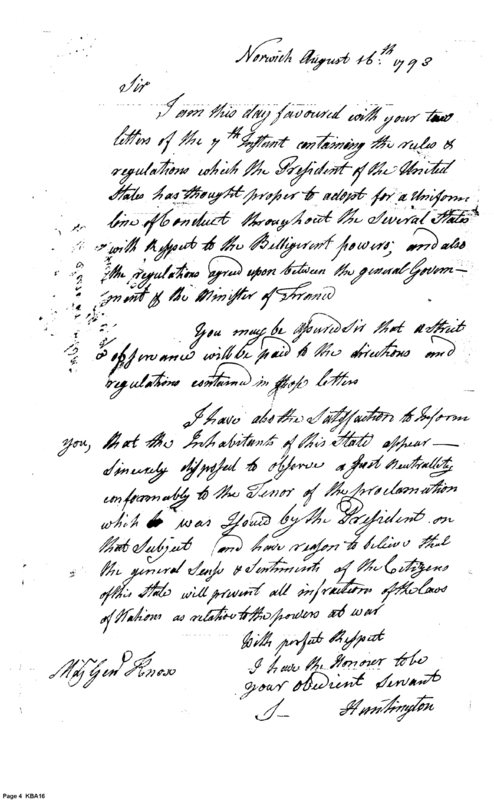 Norwich August 16th. 1793
Sir
I am this day favoured with your two
letters of the 7th Instant containing the rules &
regulations which the President of the United
States has thought proper to adopt for a Uniform
line of Conduct throughout the Several States
with Respect to the Belligerent powers; and also
the regulations agreed upon between the general Govern—
ment & the Minister of France
You may be assured Sir that a Strict
observance will be paid to the directions and
regulations contained in those letters
I have also the Satisfaction to Inform
you, that the Inhabitants of this State appear—
Sincerely disposed to observe a Just Neutrallity
conformably to the Tenor of the proclamation
which was Issued by the President on
that Subject and have reason to believe that
the general Sense & Sentiments of the Citizens
of this State will prevent all infractions of the Laws
of Nations as relative to the powers at war
With perfect Respect
I have the Honour to be
your obedient Servant
S— Huntington
Maj Genl Knox
Page 4 KBA16